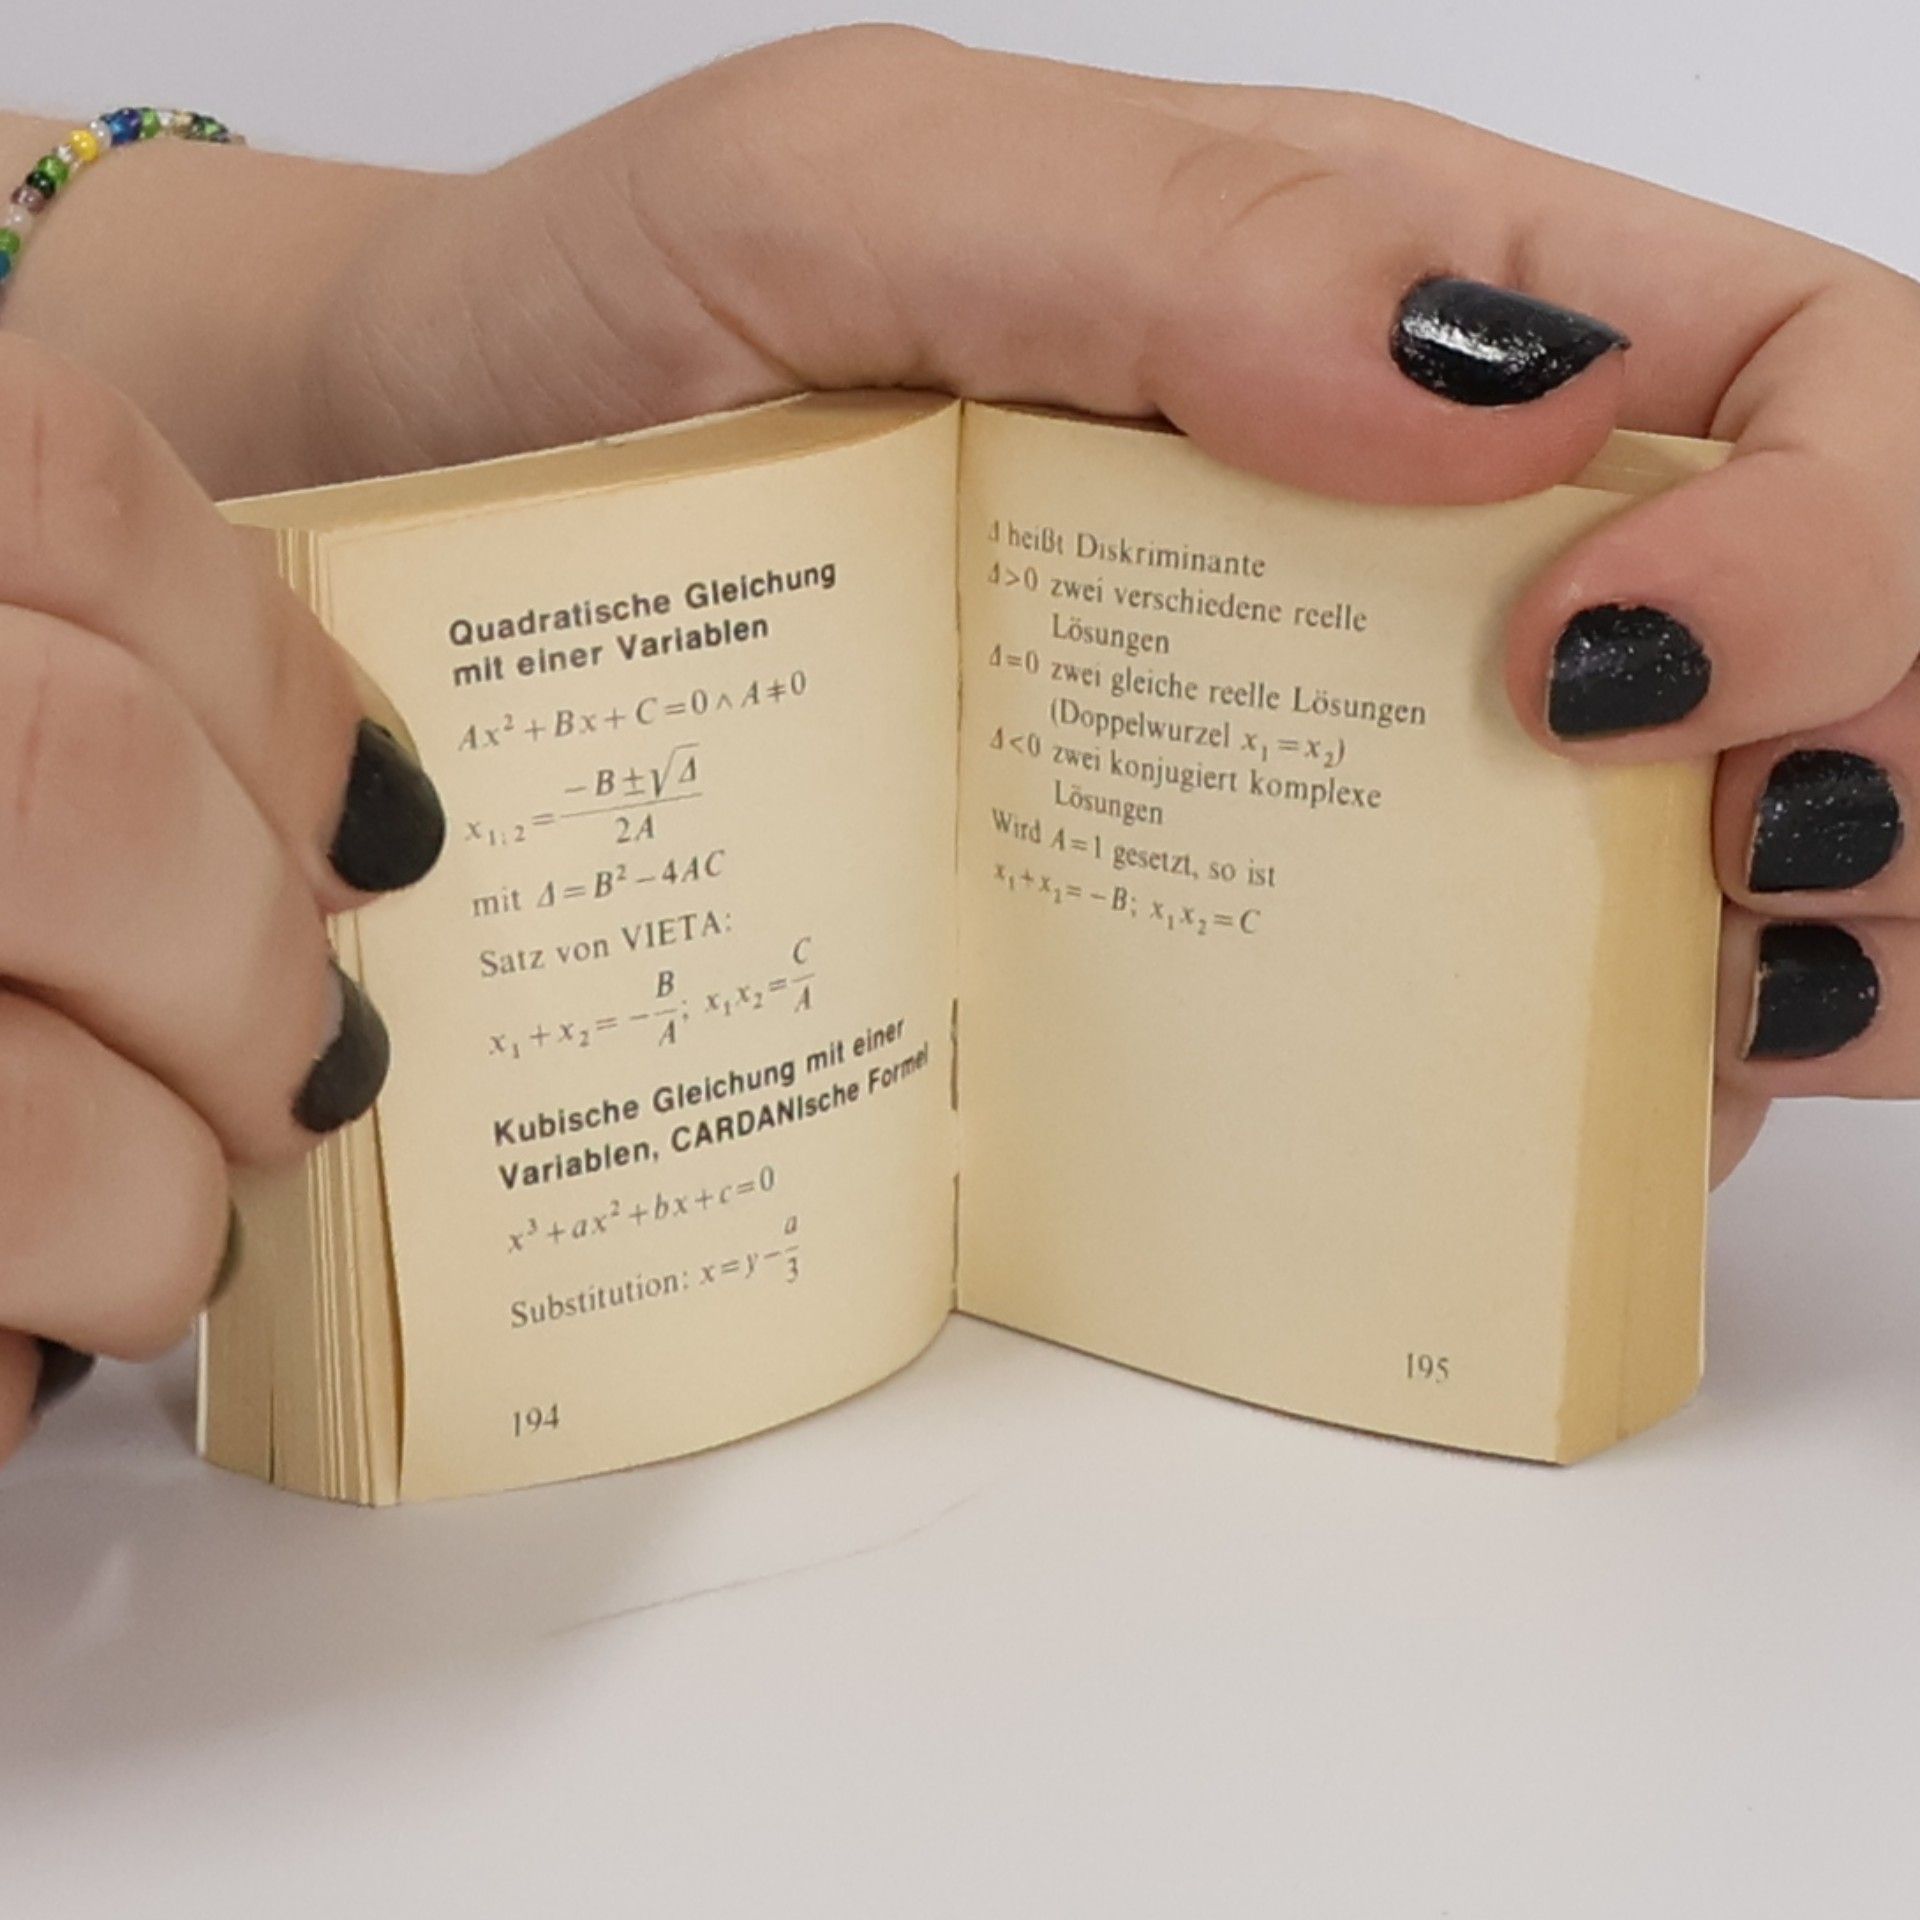 Quadratische Gleichung
mit einer Variablen
Ax² + Bx + C = 0 ∧ A ≠ 0
x₁;₂ = (−B ± √Δ) / 2A
mit Δ = B² − 4AC
Satz von VIETA:
x₁ + x₂ = −B/A; x₁x₂ = C/A
Kubische Gleichung mit einer
Variablen, CARDANIsche Formel
x³ + ax² + bx + c = 0
Substitution: x = y − a/3
194
Δ heißt Diskriminante
Δ>0 zwei verschiedene reelle
Lösungen
Δ=0 zwei gleiche reelle Lösungen
(Doppelwurzel x₁ = x₂)
Δ<0 zwei konjugiert komplexe
Lösungen
Wird A = 1 gesetzt, so ist
x₁ + x₂ = −B; x₁x₂ = C
195